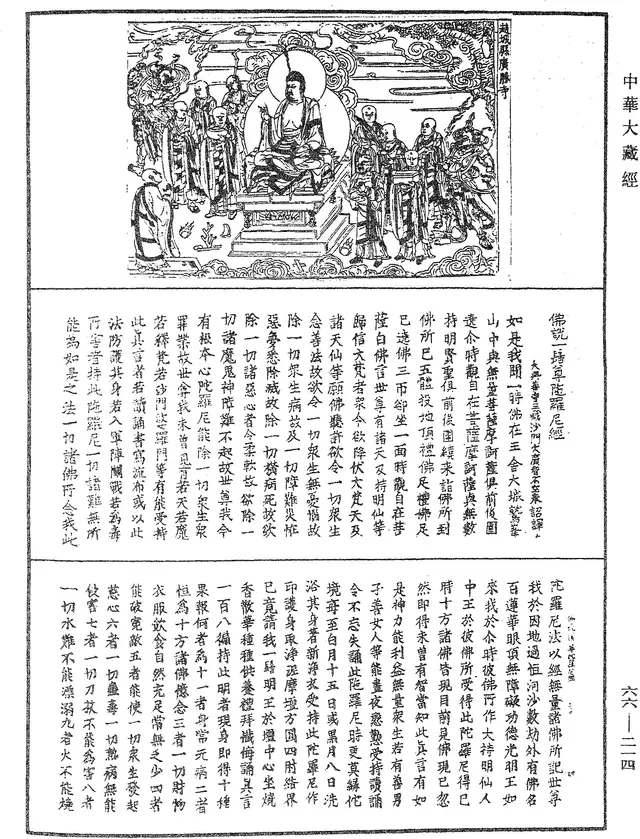 中華大藏經
趙城縣廣勝寺
佛說一髻尊陁羅尼經
大興善寺三藏沙門大廣智不空奉 詔譯
如是我聞一時佛在王舍大城鷲峯
山中與無量菩薩摩訶薩俱前後圍
遶尒時觀自在菩薩摩訶薩與無數
持明賢聖俱前後圍繞來詣佛所到
佛所已五體投地頂禮佛足禮佛足
已遶佛三帀却坐一面時觀自在菩
薩白佛言世尊有諸天及持明仙等
歸信大梵者衆今欲降伏大梵天及
諸天仙等願佛聽許欲令一切衆生
念善法故欲令一切衆生無憂惱故
除一切衆生病故及一切障難災恠
惡夢悉除滅故除一切橫病死故欲
除一切諸惡心者令柔軟故欲除一
切諸魔鬼神障難不起故世尊我今
有根本心陁羅尼能除一切衆生衆
罪業故世尊我未曾見有若天若魔
若釋梵若沙門婆羅門等有能受持
此真言者若讀誦書寫流布或以此
法防護其身若入軍陣鬭戰若為毒
所害者持此陁羅尼一切諸難無所
能為如是之法一切諸佛所念我此
陁羅尼法以經無量諸佛所說世尊
我於因地過恒河沙數劫外有佛名
百蓮華眼頂無障礙功德光明王如
來我於尒時彼佛所作大持明仙人
中王於彼佛所受得此陁羅尼得已
時十方諸佛皆現目前見佛現已忽
然即得未曾有智當知此真言有如
是神力能利益無量衆生若有善男
子善女人等能晝夜慇懃受持讀誦
令不忘失誦此陁羅尼時更莫緣佗
境每至白月十五日或黑月八日洗
浴其身著新淨衣受持此陁羅尼作
印護身取淨渥摩壇方圓四肘結界
已竟請我一髻明王於壇中心坐燒
香散華種種供養禮拜懺悔誦真言
一百八徧持此明者現身即得十種
果報何者為十一者身常無病二者
恒為十方諸佛憶念三者一切財物
衣服飲食自然充足常無乏少四者
能破寃敵五者能使一切衆生發起
慈心六者一切蠱毒一切熱病無能
侵害七者一切刀杖不能為害八者
一切水難不能漂溺九者火不能燒
六六—二一四